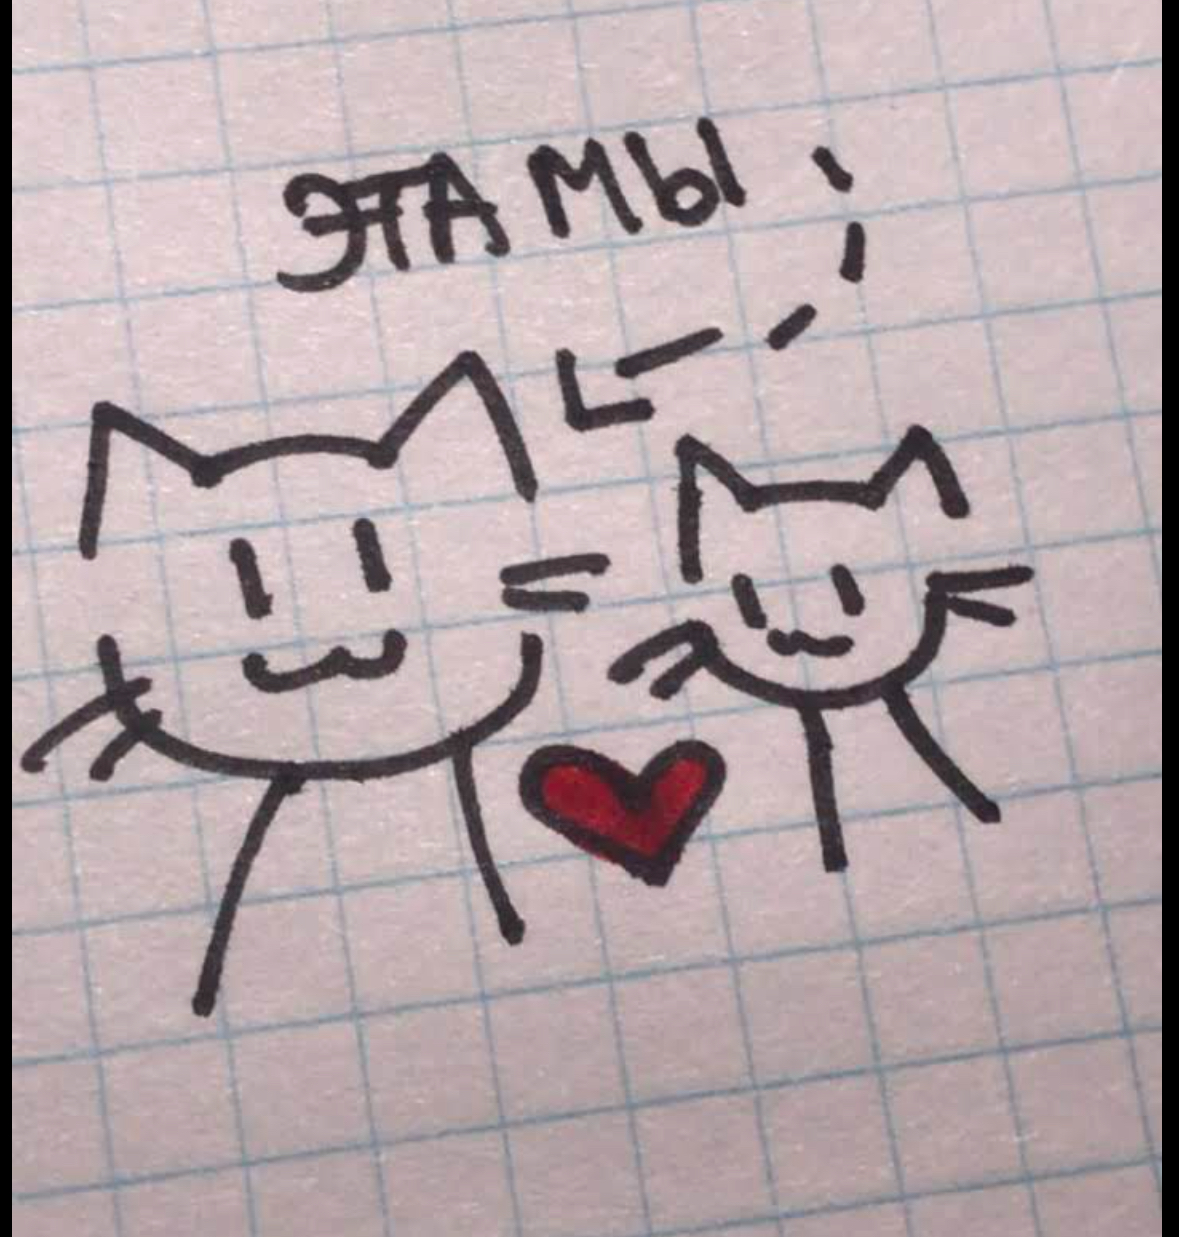 ЭТА МЫ